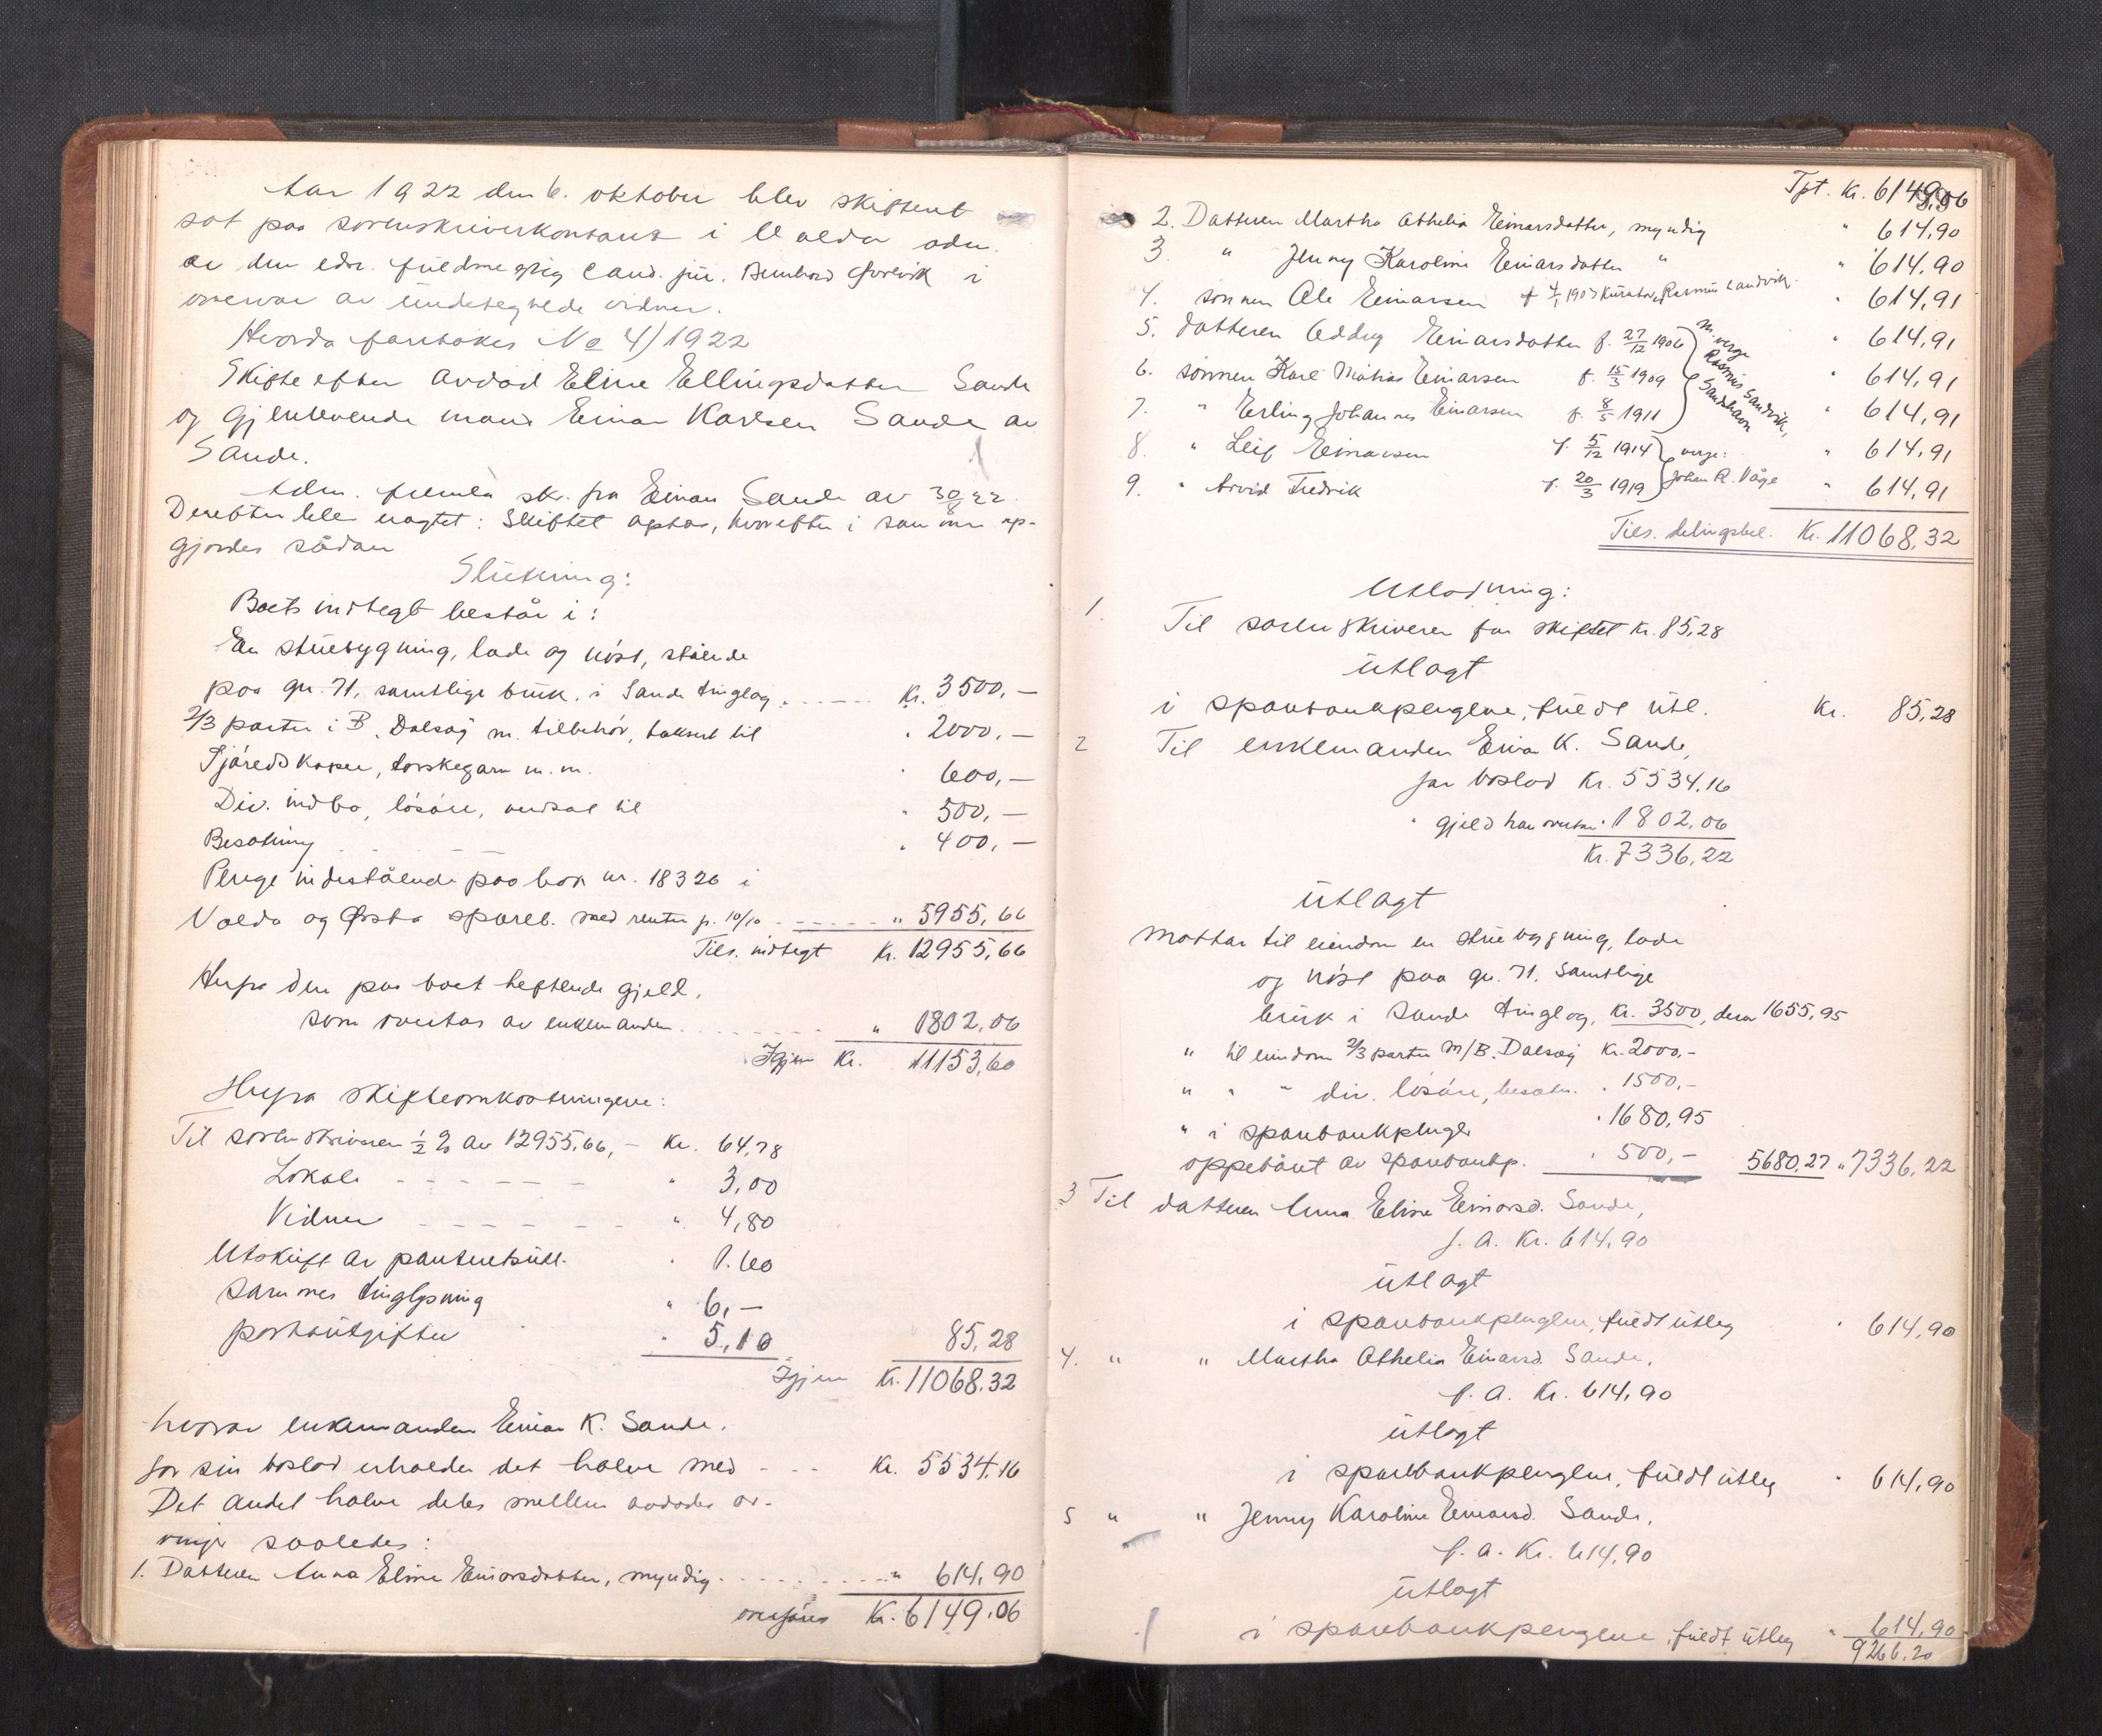 Aar 1922 den 6. oktober blev skifteret
sat paa sorenskriverkontoret i Volda adm.
av den edsv. fuldmegtig cand. jur. Bernhard i
overvær av undertegnede vidner.
Hvorda foretokes No 4/1922
Skifte efter avdöd Eline Ellingsdatter Sande
og gjenlevende mand Einar Karlsen Sande av
Sande.
Adm. fremla skr. fra Einar Sande av 30/8 22.
Derefter blev vagtet: Skiftet optas, hvorefter i samme op-
gjordes sådan
Slutning:
Boets indtegt består i:
En stuebygning, lade og nöst, stående
paa gn. 71, samtlige bruk, i Sande tinglag. Kr. 3500,—
2/3 parter i B. Dalsøj m. tilbehör, taksert til " 2000,—
Fjäredskaper, torskegarn m.m. " 600,—
Div. indbo, lösöre, verdsat til " 500,—
Besætning " 400,—
Penge indestående paa bok nr. 18326 i
Volda og Ørsta spareb. med renter p. 10/10 " 5955,66
Tils. indtegt Kr. 12955,66
Herfra den paa boet heftende gjeld,
som overtas av enkemanden " 1802,06
Igjen Kr. 11153,60
Herfra skifteomkostningene:
Til sorenskriveren 1/2 % av 12955,66,— Kr. 64,78
Lokale " 3,00
Vidner " 4,80
Utskrift av panteretsutl. " 1.60
Sammes tinglysning " 6,—
portoutgifter " 5,10 85,28
Igjen Kr. 11068.32
hvorav enkemanden Einar K. Sande,
for sin boslod erholder det halve med - - - Kr. 5534.16
Det andet halve deles mellem avdödes ar-
vinger saaledes:
1. Datteren Anna Eline Einarsdatter, myndig " 614,90
overföres Kr. 6149.06
Tpt. Kr. 6149,06
2. Datteren Martha Athelia Einarsdatter, myndig " 614,90
3. " Jenny Karoline Einarsdatter " " 614,90
4. sönnen Ole Einarsen f 4/1 1903 Kurator, Rasmus Sandvik. " 614,91
5. datteren Oddny Einarsdatter f. 27/12 1906 " 614,91
6. sönnen Karl Mathias Einarsen f. 15/3 1909 " 614,91
7. " Erling Johannes Einarsen f. 8/5 1911 " 614,91
m verge
Rasmus Sandvik,
Sandshavn
8. " Leif Einarsen f. 5/12 1914 verge: " 614,91
9. " Arvid Fredrik f. 20/3 1919 Johan R. Våge " 614,91
Tils. delingsbel. Kr. 11068,32
Utlodning:
1. Til sorenskriveren for skiftet Kr. 85,28
utlagt
i sparebankpengene, fuldt utl. Kr. 85,28
2 Til enkemanden Einar K. Sande,
for boslod Kr. 5534,16
" gjeld han overtar " 1802,06
Kr. 7336,22
utlagt
Mottar til eiendom en stuebygning, lade
og nöst paa gn. 71, samtlige
bruk i Sande tinglag, Kr. 3500, derav 1655,95
" til eiendom 2/3 parter M/B. Dalsøj Kr. 2000,-
" " " div. lösöre, besætn. " 1500,-
" i sparebankpenger " 1680,95
oppebåret av sparebankp. " 500,- 5680,27 " 7336,22
3 Til datteren Anna Eline Einarsd. Sande,
f. a. Kr. 614,90
utlagt
i sparebankpengene, fuldt utleg " 614,90
4. " " Martha Athelia Einarsd. Sande,
f. a. Kr. 614,90
utlagt
i sparebankpengene, fuldt utleg " 614,90
5 " " Jenny Karoline Einarsd. Sande,
f. a. Kr. 614,90
utlagt
i sparebankpengene, fuldt utleg " 614,90
9266.20